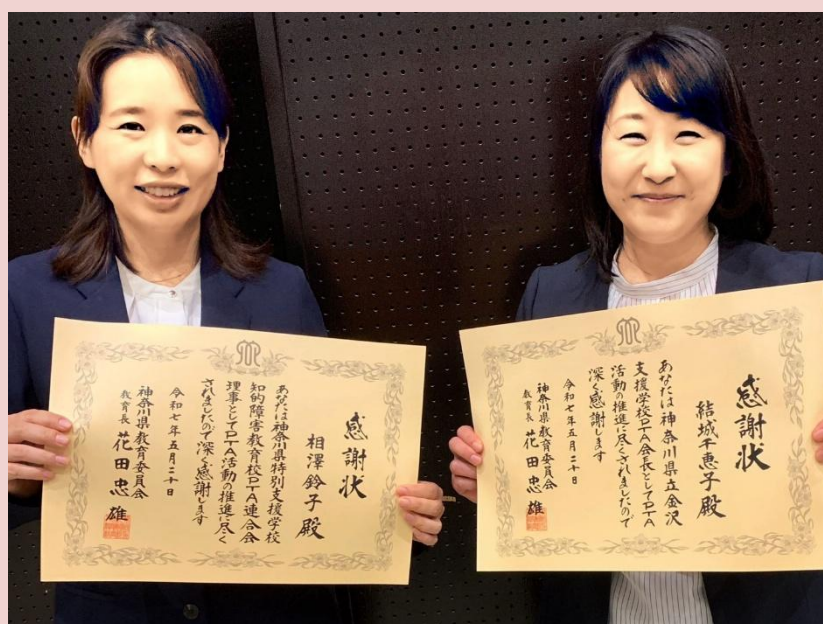 感謝状
相澤鈴子殿
あなたは神奈川県特別支援学校
知的障害教育校PTA連合会
理事としてPTA活動の推進に尽く
されましたので深く感謝します
令和七年五月二十日
神奈川県教育委員会
教育長 花田忠雄
感謝状
結城千恵子殿
あなたは神奈川県立金沢
支援学校PTA会長としてPTA
活動の推進に尽くされましたので
深く感謝します
令和七年五月二十日
神奈川県教育委員会
教育長 花田忠雄